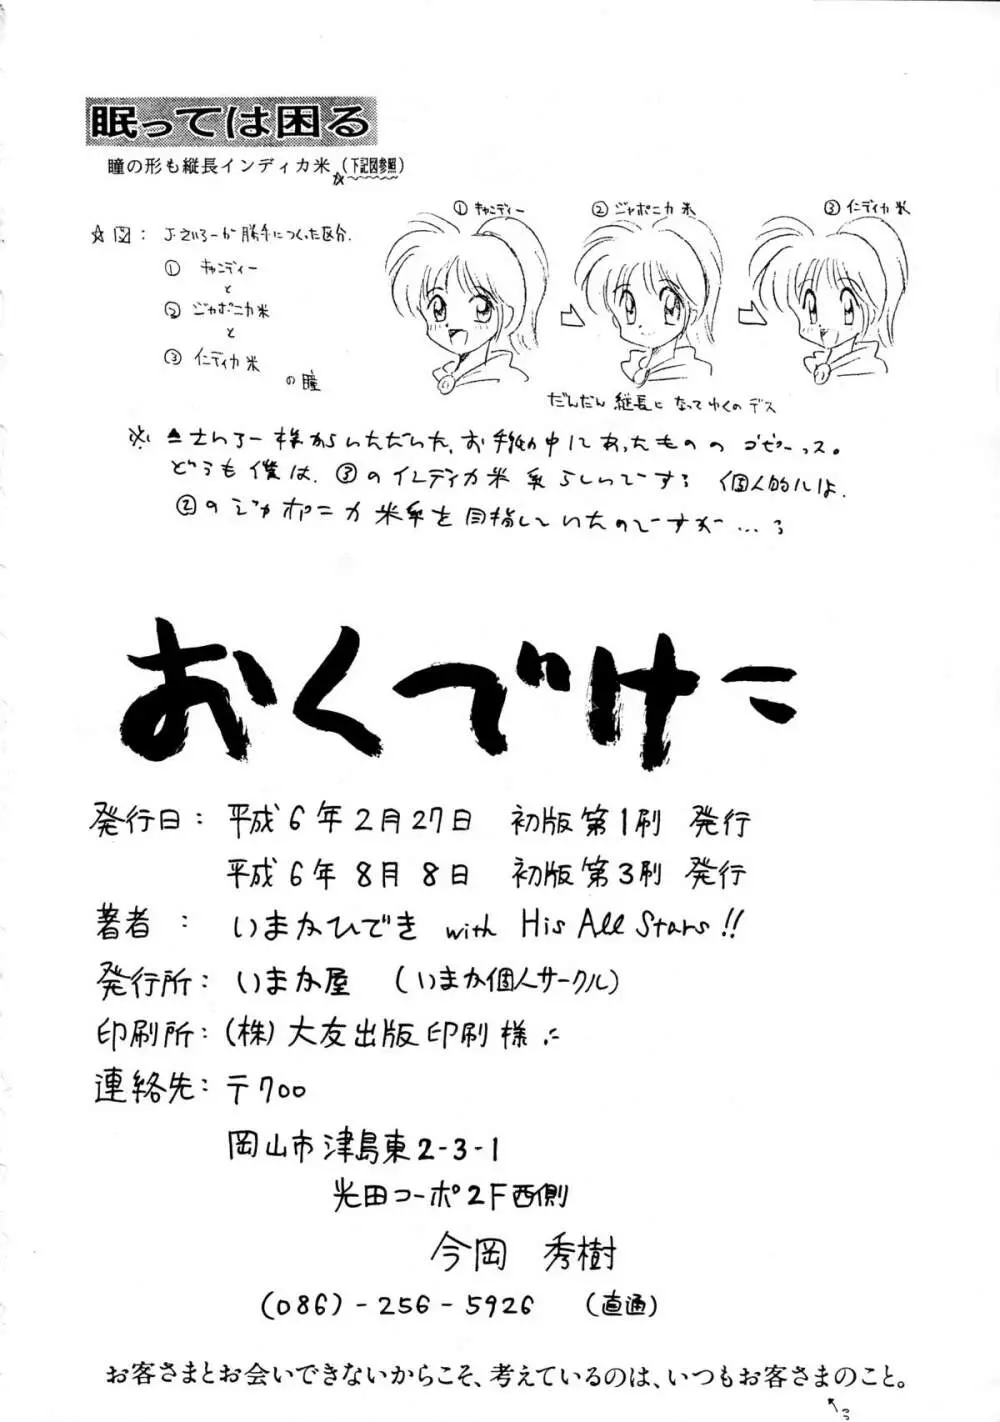 眠っては困る
瞳の形も縦長インディカ米(下記図参照)
☆
① キャンディー
② ジャポニカ米
③ インディカ米
☆図: J·さいろーが勝手につくった区分.
① キャンディー
と
② ジャポニカ米
と
③ インディカ米
の瞳
だんだん縦長になってゆくのデス
※ さいろー様からいただいた、お手紙の中にあったもののコピーっス。
どうも僕は、③のインディカ米系らしいです 個人的には、
②のジャポニカ米系を目指していたのですが…
おくでけ
発行日: 平成6年2月27日 初版第1刷 発行
平成6年8月8日 初版第3刷 発行
著者 : いまかひでき with His All Stars!!
発行所: いまか屋 (いまか個人サークル)
印刷所: (株)大友出版印刷様
連絡先: 〒700
岡山市津島東2-3-1
光田コーポ2F西側
今岡 秀樹
(086)-256-5926 (直通)
お客さまとお会いできないからこそ、考えているのは、いつもお客さまのこと。